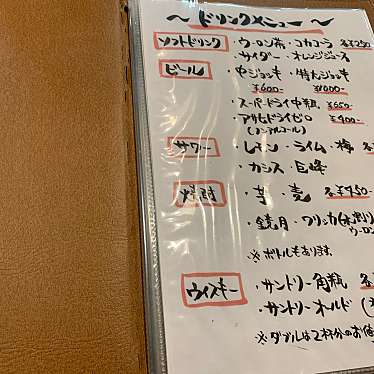 〜ドリンクメニュー〜
ソフトドリンク ・ウーロン茶・コカコーラ 各¥250
・サイダー・オレンジジュース
ビール ・中ジョッキ ・特大ジョッキ
¥600- ¥1000-
・スーパードライ中瓶 ¥650-
・アサヒドライゼロ ¥400-
(ノンアルコール)
サワー ・レモン・ライム・梅
・カシス・巨峰
焼酎 ・芋・麦 各¥450-
・鏡月・ワリッカ(水割り
ウーロン
※ボトルもあります。
ウイスキー ・サントリー角瓶
・サントリーオールド
※ダブルは2杯分のお値